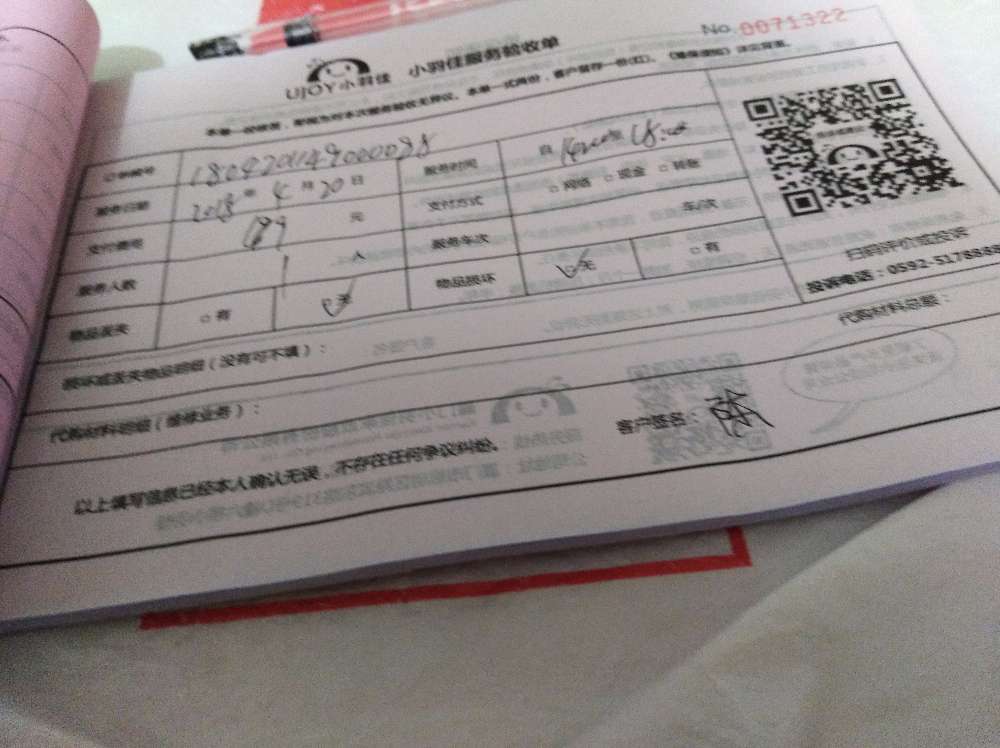 No.0071322
UJOY小羽佳 小羽佳服务验收单
订单编号 服务时间 自
服务日期 2018年4月20日 支付方式 □网络 □现金 □转账
支付费用 199元 服务车次 车/次
服务人数 1人 物品损坏 ☑无 □有
物品丢失 □有 ☑无
扫码评价或投诉
投诉电话：0592-5178888
损坏或丢失物品明细（没有可不填）：
代购材料明细（维修业务）： 代购材料总额：
以上填写信息已经本人确认无误，不存在任何争议纠纷。 客户签名：